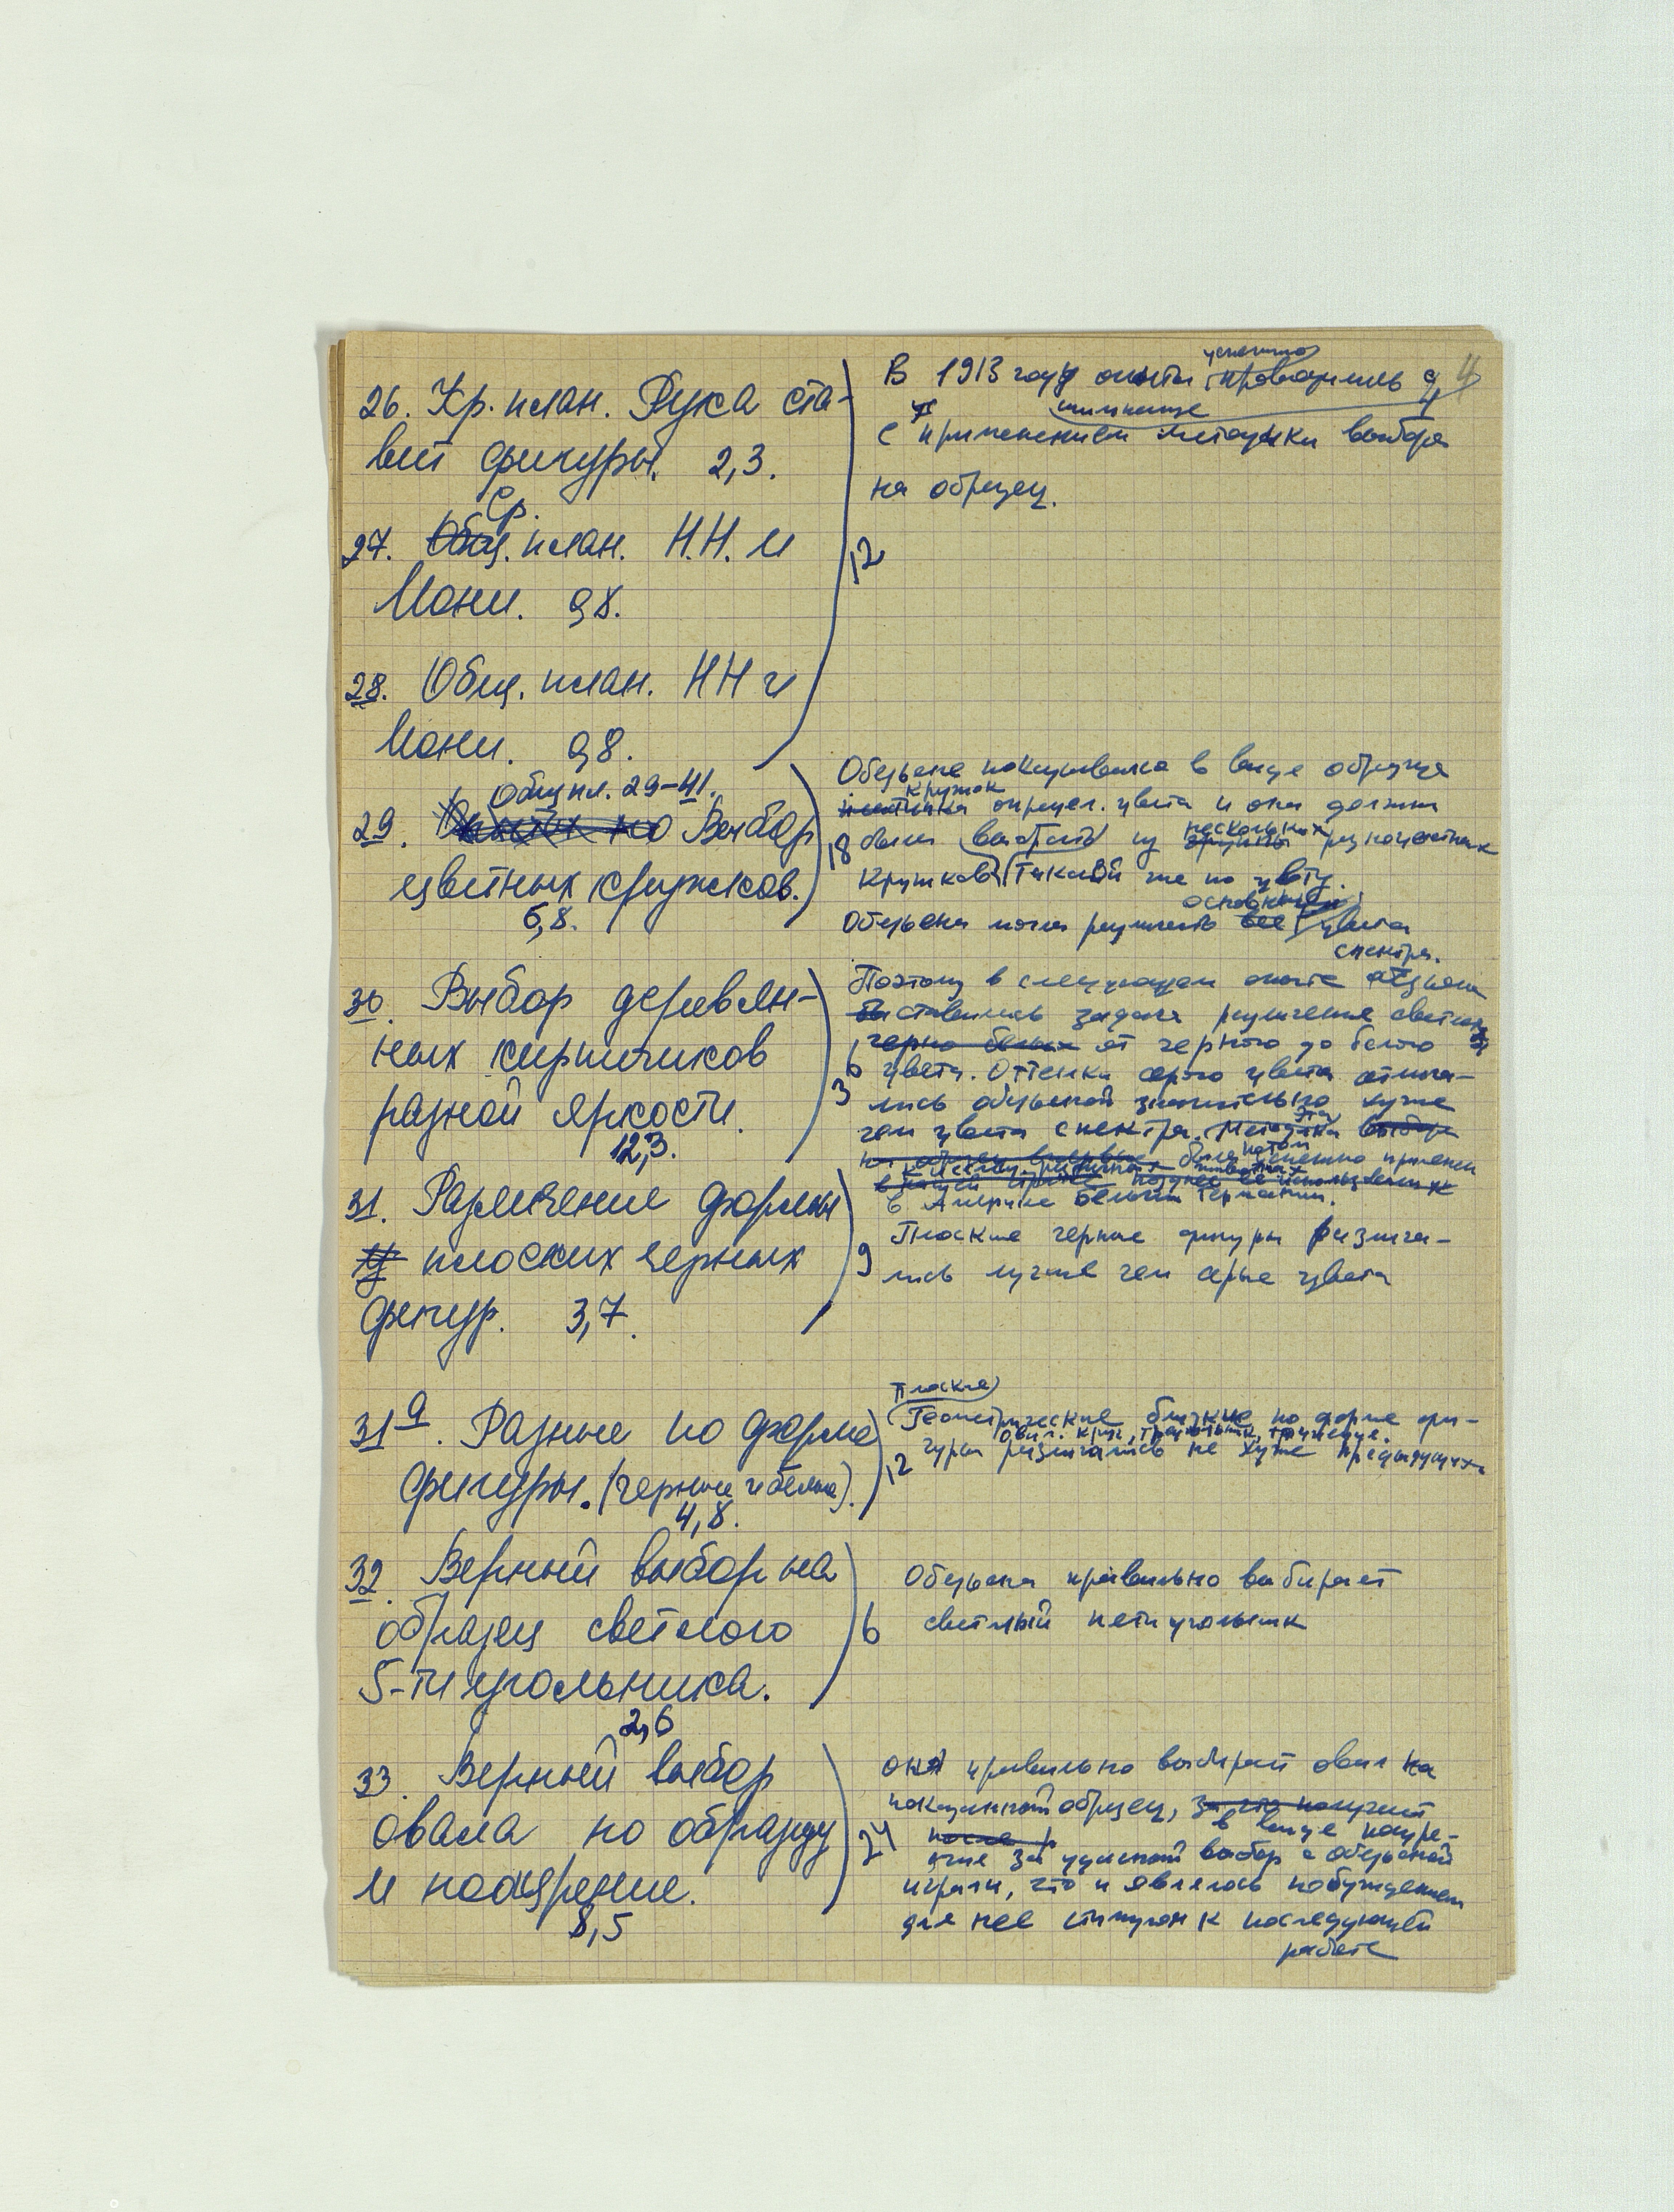 4
26. Кр. план. Рука ста-
вит фигуры. 2,3.
Ср.
27. Общ. план. Н.Н. и
Иони. 9,8.
28. Общ. план. НН и
Иони. 9,8.
Общ пл. 29-41.
29. Выбор
цветных кружков.
6,8.
30. Выбор деревян-
ных кирпичиков
разной яркости.
12,3.
31. Различение формы
плоских черных
фигур. 3,7.
31а. Разные по форме
фигуры. (черные и белые).
4,8.
32. Верный выбор на
образец светлого
5-ти угольника.
2,6
33. Верный выбор
овала по образцу
и поощрение.
8,5
успешно
В 1913 году опыты проводились
с шимпанзе
применением методики выбора
на образец.
12
Обезьяне показывался в виде образца
кружок
опредл. цвета и она должна
нескольких
18 была выбрать из группы разноцветных
кружков такой же по цвету.
основные
Обезьяна могла различать все цвета
спектра.
Поэтому в следующем опыте обезьяне
ставилась задача различения светлот
черно белых от черного до белого
6 цвета. Оттенки серого цвета отлича-
3
лись обезьяной значительно хуже
эта
чем цвета спектра. Методика выбора
потом
была успешно применен
в Америке Бельгии Германии.
Плоские черные фигуры различа-
9 лись лучше чем серые цвета
Плоские
Геометрические близкие по форме фи-
овал. круг, треугольник, трапеция.
гуры различались не хуже предыдущих
12
Обезьяна правильно выбирает
6 светлый пятиугольник
она правильно выбирает овал на
показанный образец, за что получает
в виде поощре-
24 ния за удачный выбор с обезьяной
играли, что и являлось побуждением
для нее стимулом к последующей
работе